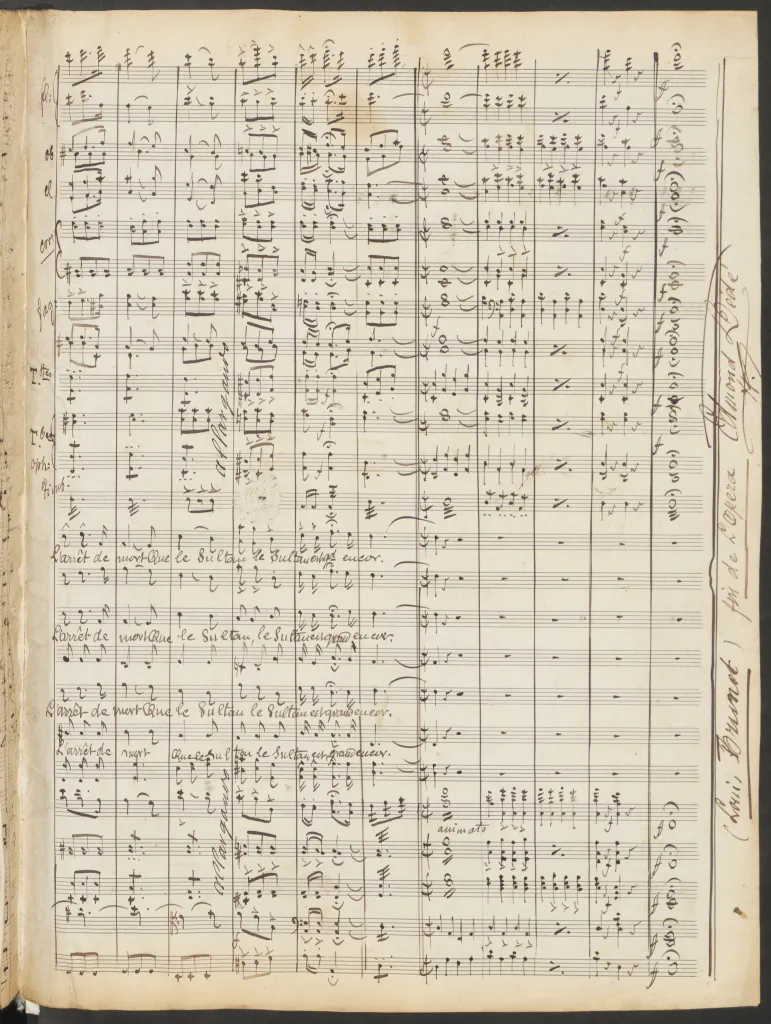 fl:
ob
cl
cor
fag
T.bes
oph:
allargando
L'arrêt de mort Que le Sultan le Sultan est gd encor.
L'arrêt de mort Que le Sultan, le Sultan est grand encor.
L'arrêt de mort Que le Sultan le Sultan est grand encor.
L'arrêt de mort Que le Sultan le Sultan est grand encor.
allargando
animato
(Louis Brunet) fin de L'opéra